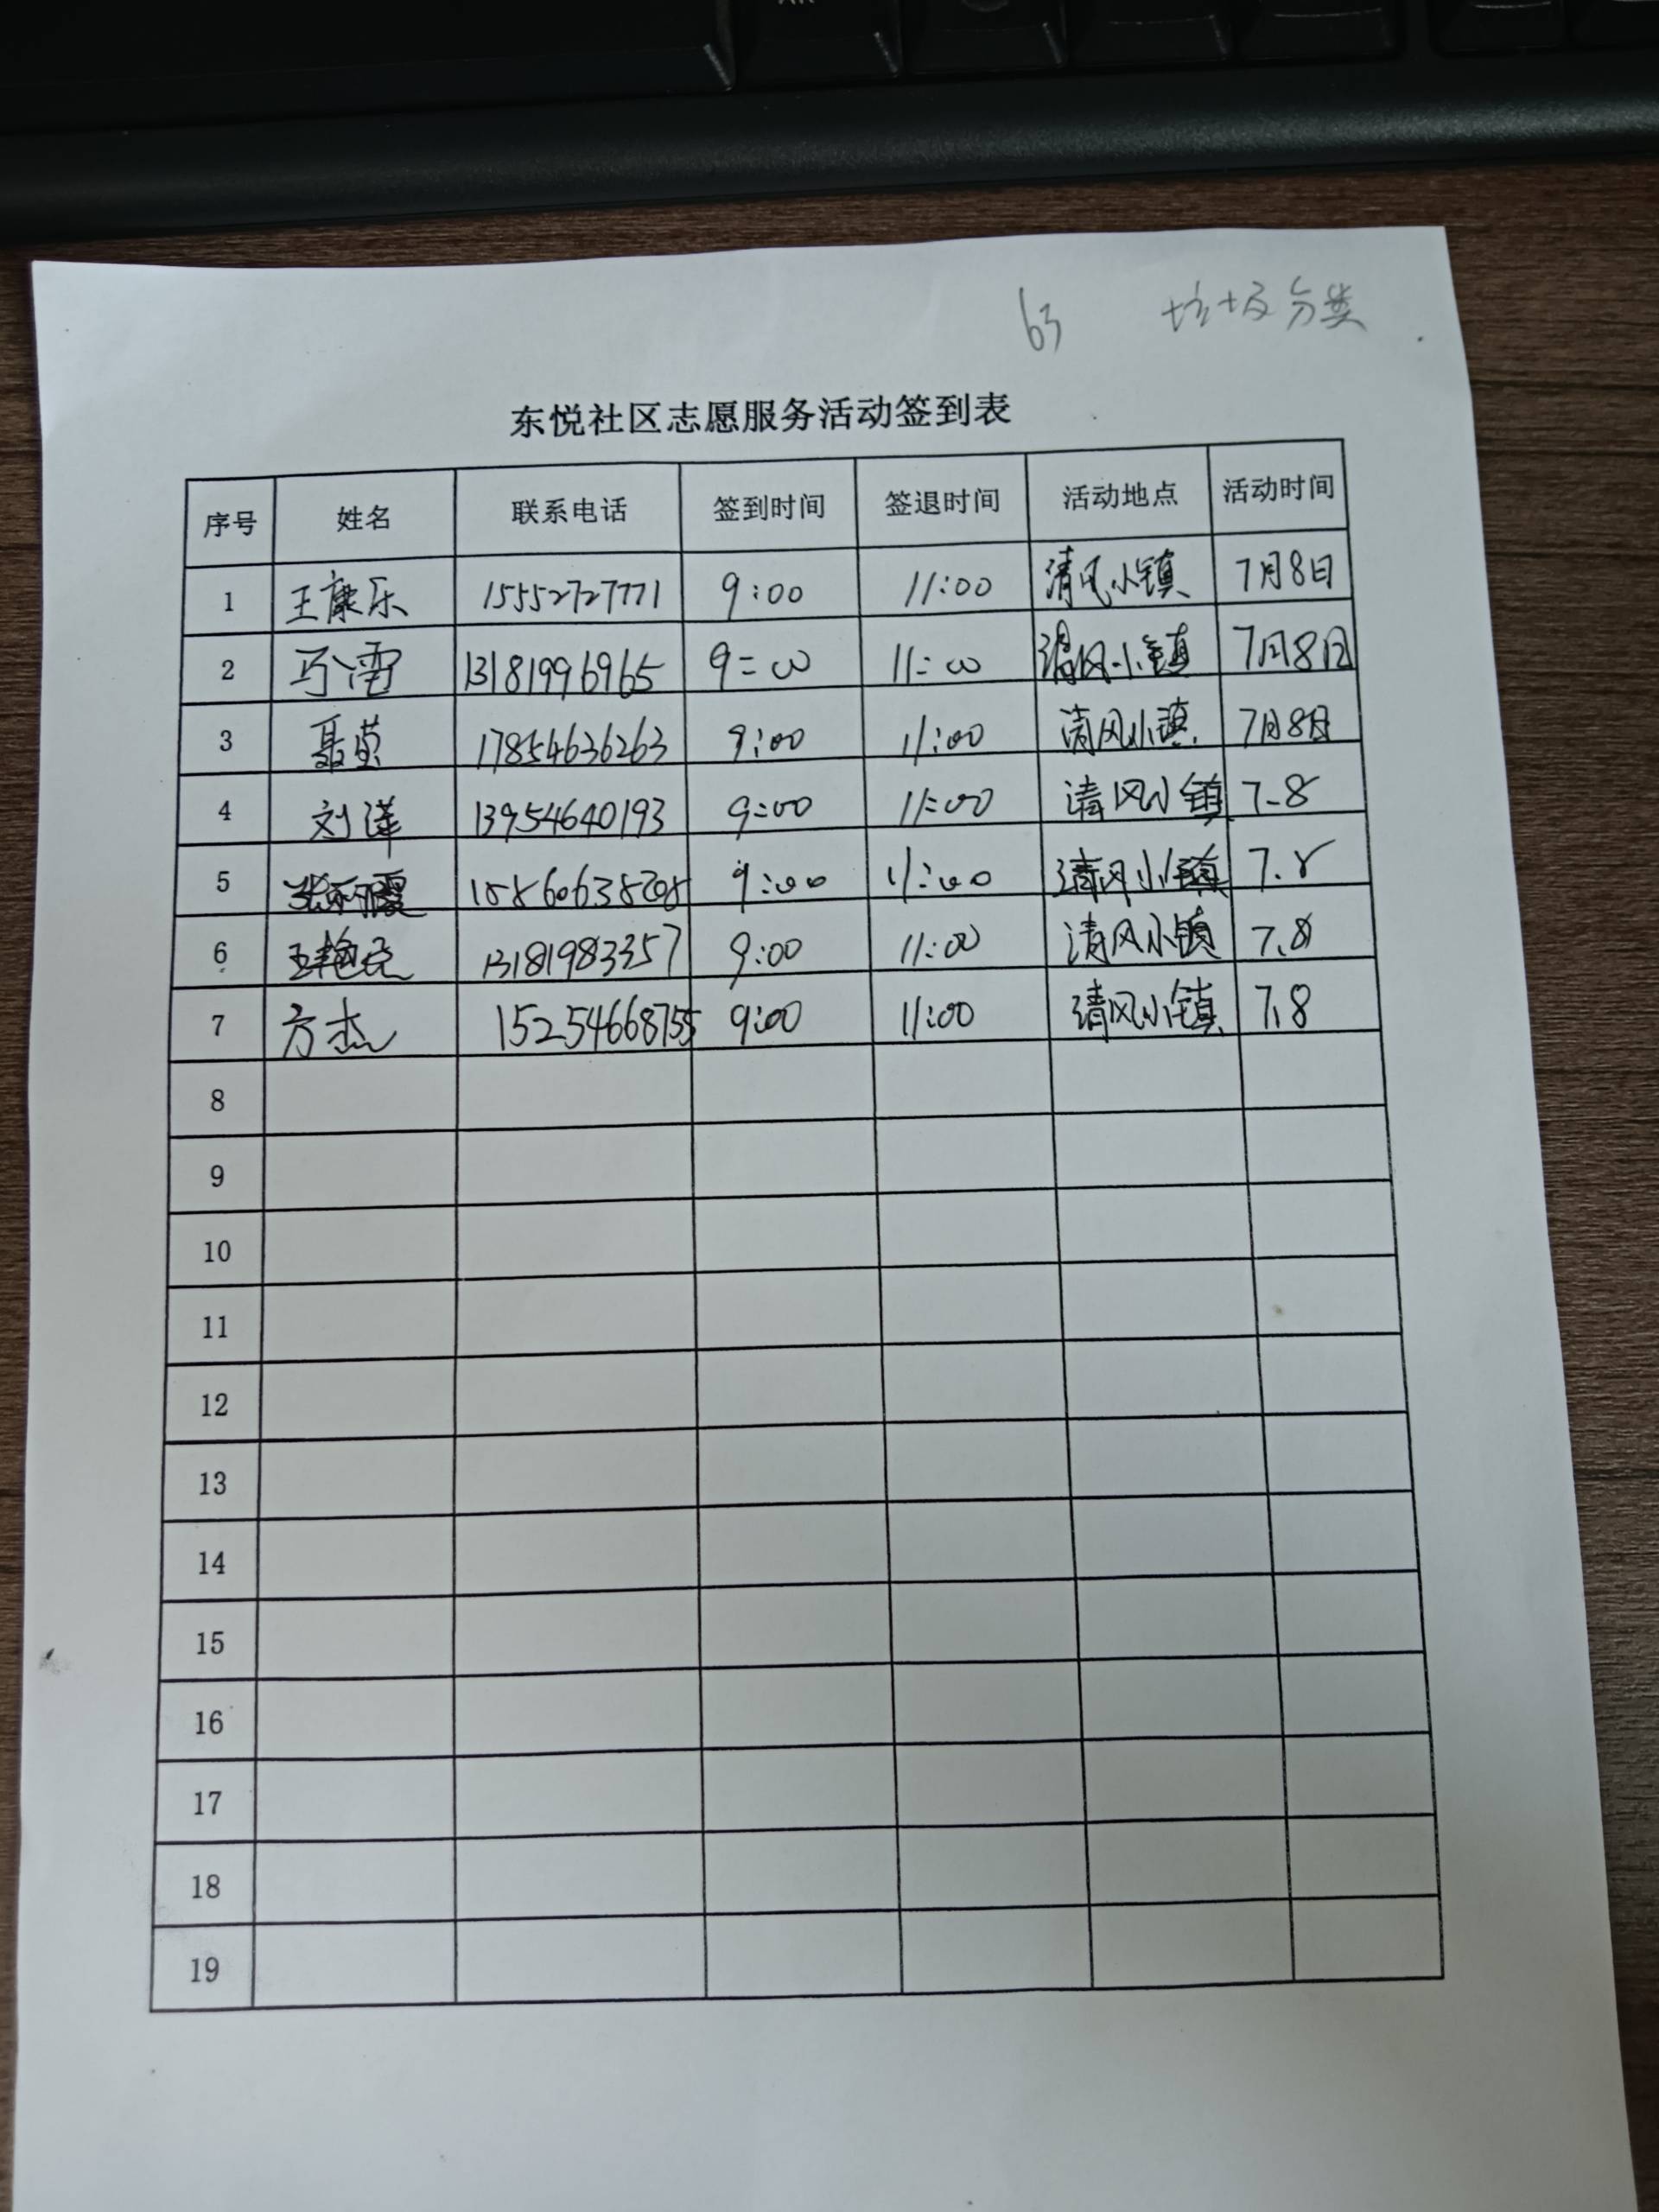 63 垃圾分类
东悦社区志愿服务活动签到表
序号 姓名 联系电话 签到时间 签退时间 活动地点 活动时间
1 王康乐 15552727771 9:00 11:00 清风小镇 7月8日
2 马雷 13181996965 9:00 11:00 清风小镇 7月8日
3 聂莹 17854636263 9:00 11:00 清风小镇 7月8日
4 刘洋 13954640193 9:00 11:00 清风小镇 7.8
5 15860638208 9:00 11:00 清风小镇 7.8
6 13181983357 9:00 11:00 清风小镇 7.8
7 方杰 15254668755 9:00 11:00 清风小镇 7.8
8
9
10
11
12
13
14
15
16
17
18
19